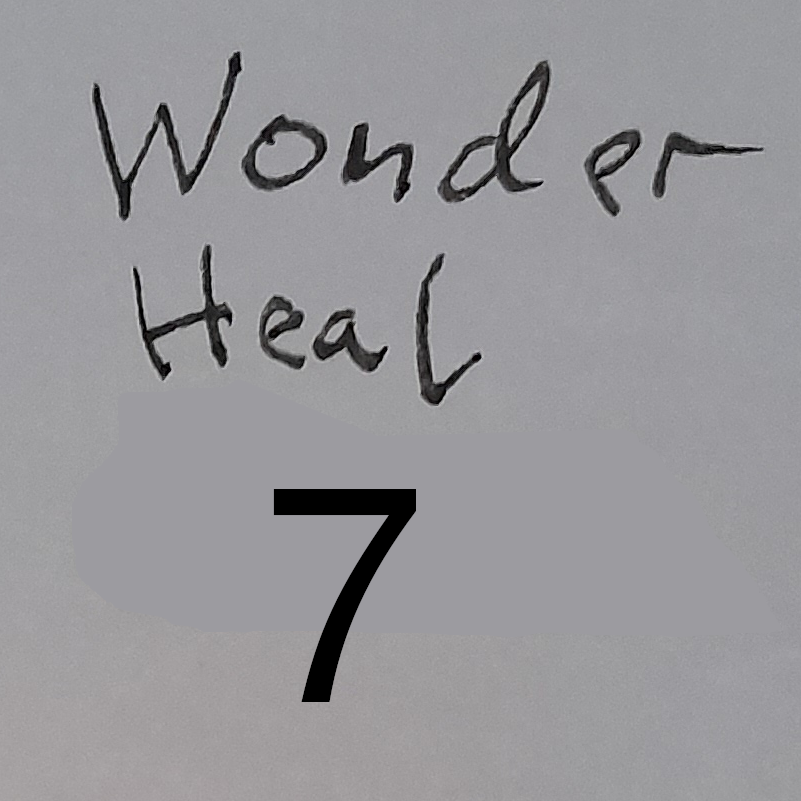 Wonder
Heal
7